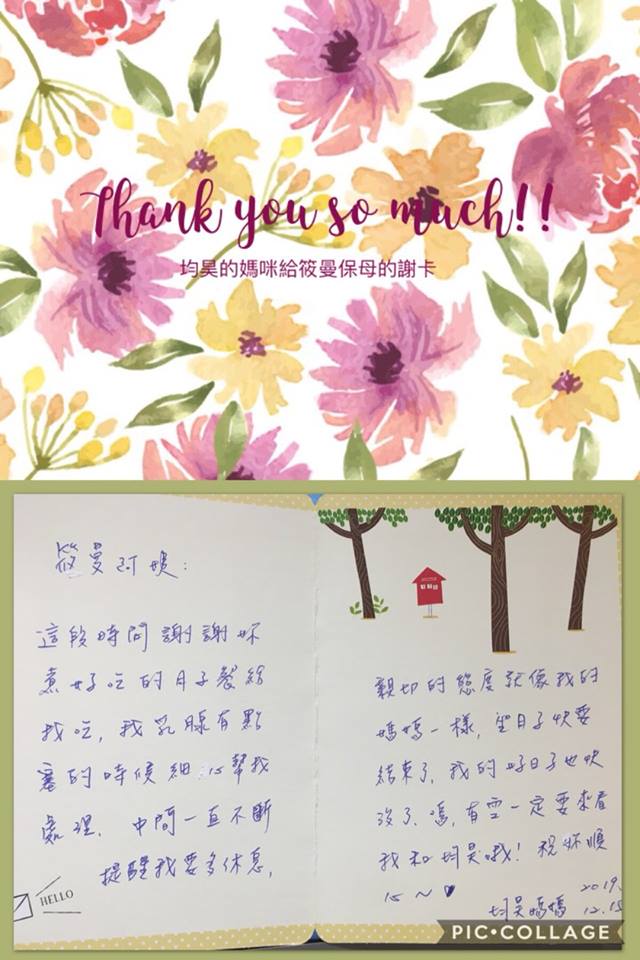 Thank you so much!!
均昊的媽咪給筱曼保母的謝卡
筱曼阿姨:
這段時間謝謝妳
煮好吃的月子餐給
我吃,我乳腺有點
塞的時候細心幫我
處理,中間一直不斷
提醒我要多休息,
HELLO
親切的態度就像我的
媽媽一樣,坐月子快要
結束了,我的好日子也快
沒了.嗚,有空一定要來看
我和均昊哦!祝妳順
心~♥
2019.
均昊媽媽 12.15
PIC•COLLAGE